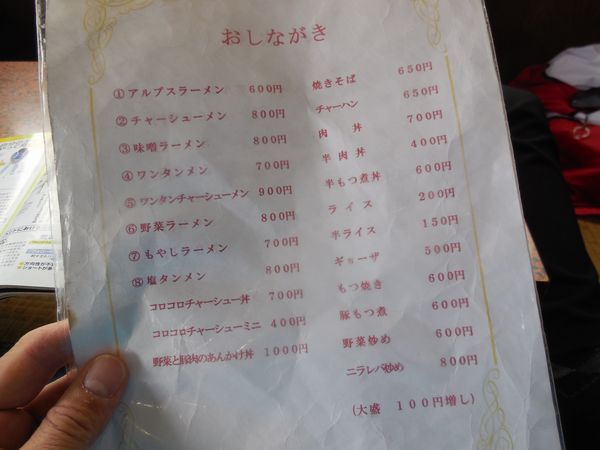 おしながき
①アルプスラーメン 600円
②チャーシューメン 800円
③味噌ラーメン 800円
④ワンタンメン 700円
⑤ワンタンチャーシューメン 900円
⑥野菜ラーメン 800円
⑦もやしラーメン 700円
⑧塩タンメン 800円
コロコロチャーシュー丼 700円
コロコロチャーシューミニ 400円
野菜と豚肉のあんかけ丼 1000円
焼きそば 650円
チャーハン 650円
肉丼 700円
半肉丼 400円
半もつ煮丼 600円
ライス 200円
半ライス 150円
ギョーザ 500円
もつ焼き 600円
豚もつ煮 600円
野菜炒め 600円
ニラレバ炒め 800円
(大盛 100円増し)